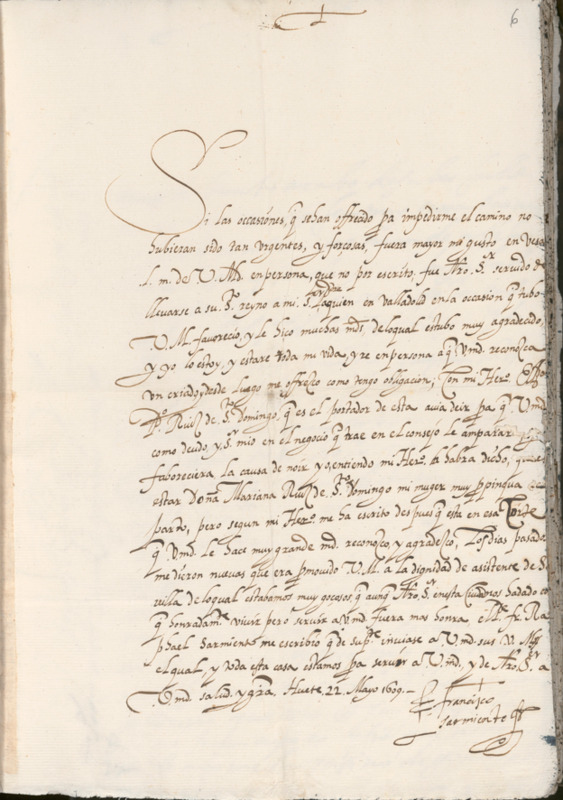 6
Si las occasiónes, q̃ sehan offreçido pa impedirme el camino no
hubieran sido tan vrgentes, y forçosas, fuera mayor mi gusto en vesa
l. m. de V. Md. en persona, que no por escrito, fue Nro. Sr. seruido de
lleuarse a su Sto. reyno a mi Sr. aquien en valladolid en la occasion q̃ tubo
V. M. fauoreçio, y le hiço muchas mds. de loqual estubo muy agradeçido,
y yo lo estoy, y estare toda mi vida, y re en persona a q̃ Vmd. reconozca
vn criado, desde luego me offrezco como tengo obligaçion, Con mi Hero. El
Po. Ruiz de Sto. Domingo, q̃ es el portador de esta auia deir pa q̃ Vmd
como deudo, y Sr. mio en el negoçio q̃ trae en el consejo le amparar
faboreciera la causa de no ir yo, entiendo mi Hero. la habra dicho,
estar Doña Mariana Ruiz de Sto. Domingo mi muger muy ppinqua
parto, pero segun mi Hero. me ha escrito despues q̃ esta en esa Corte
q̃ Vmd. le haçe muy grande md. reconozco, y agradesco, Los dias pasado
me dieron nueuas que era pmouido V. M. a la dignidad de asistente de Se
uilla de loqual estabamos muy goçosos, q̃ aunq̃ Nro. Sr. en esta Ciudad nos ha dado co
q̃ honradamte. viuir pero seruir a Vmd. fuera mas honra. El Pe. fr. Ra
phael Sarmiento me escribio q̃ de su pte. inuiase a Vmd. sus
el qual, y toda esta casa estamos pa seruir a V. md, y de Nro. Sr. a
V. md salud, y gra. Huete, 22, Mayo 1609.
Francisco
Sarmiento